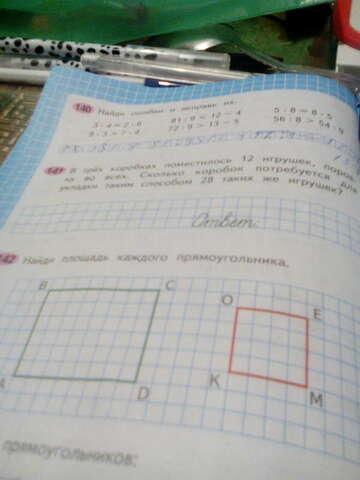 140 Найди ошибки и исправь их.
3 · 4 = 2 · 6 81 : 9 < 12 − 4 5 · 8 = 8 · 5
8 · 3 > 7 · 4 72 : 9 > 13 − 5 56 : 8 > 54 : 9
141 В трёх коробках поместилось 12 игрушек, поров-
ну во всех. Сколько коробок потребуется для
укладки таким способом 28 таких же игрушек?
Ответ:
142 Найди площадь каждого прямоугольника.
B C
O E
A D
K M
прямоугольников: